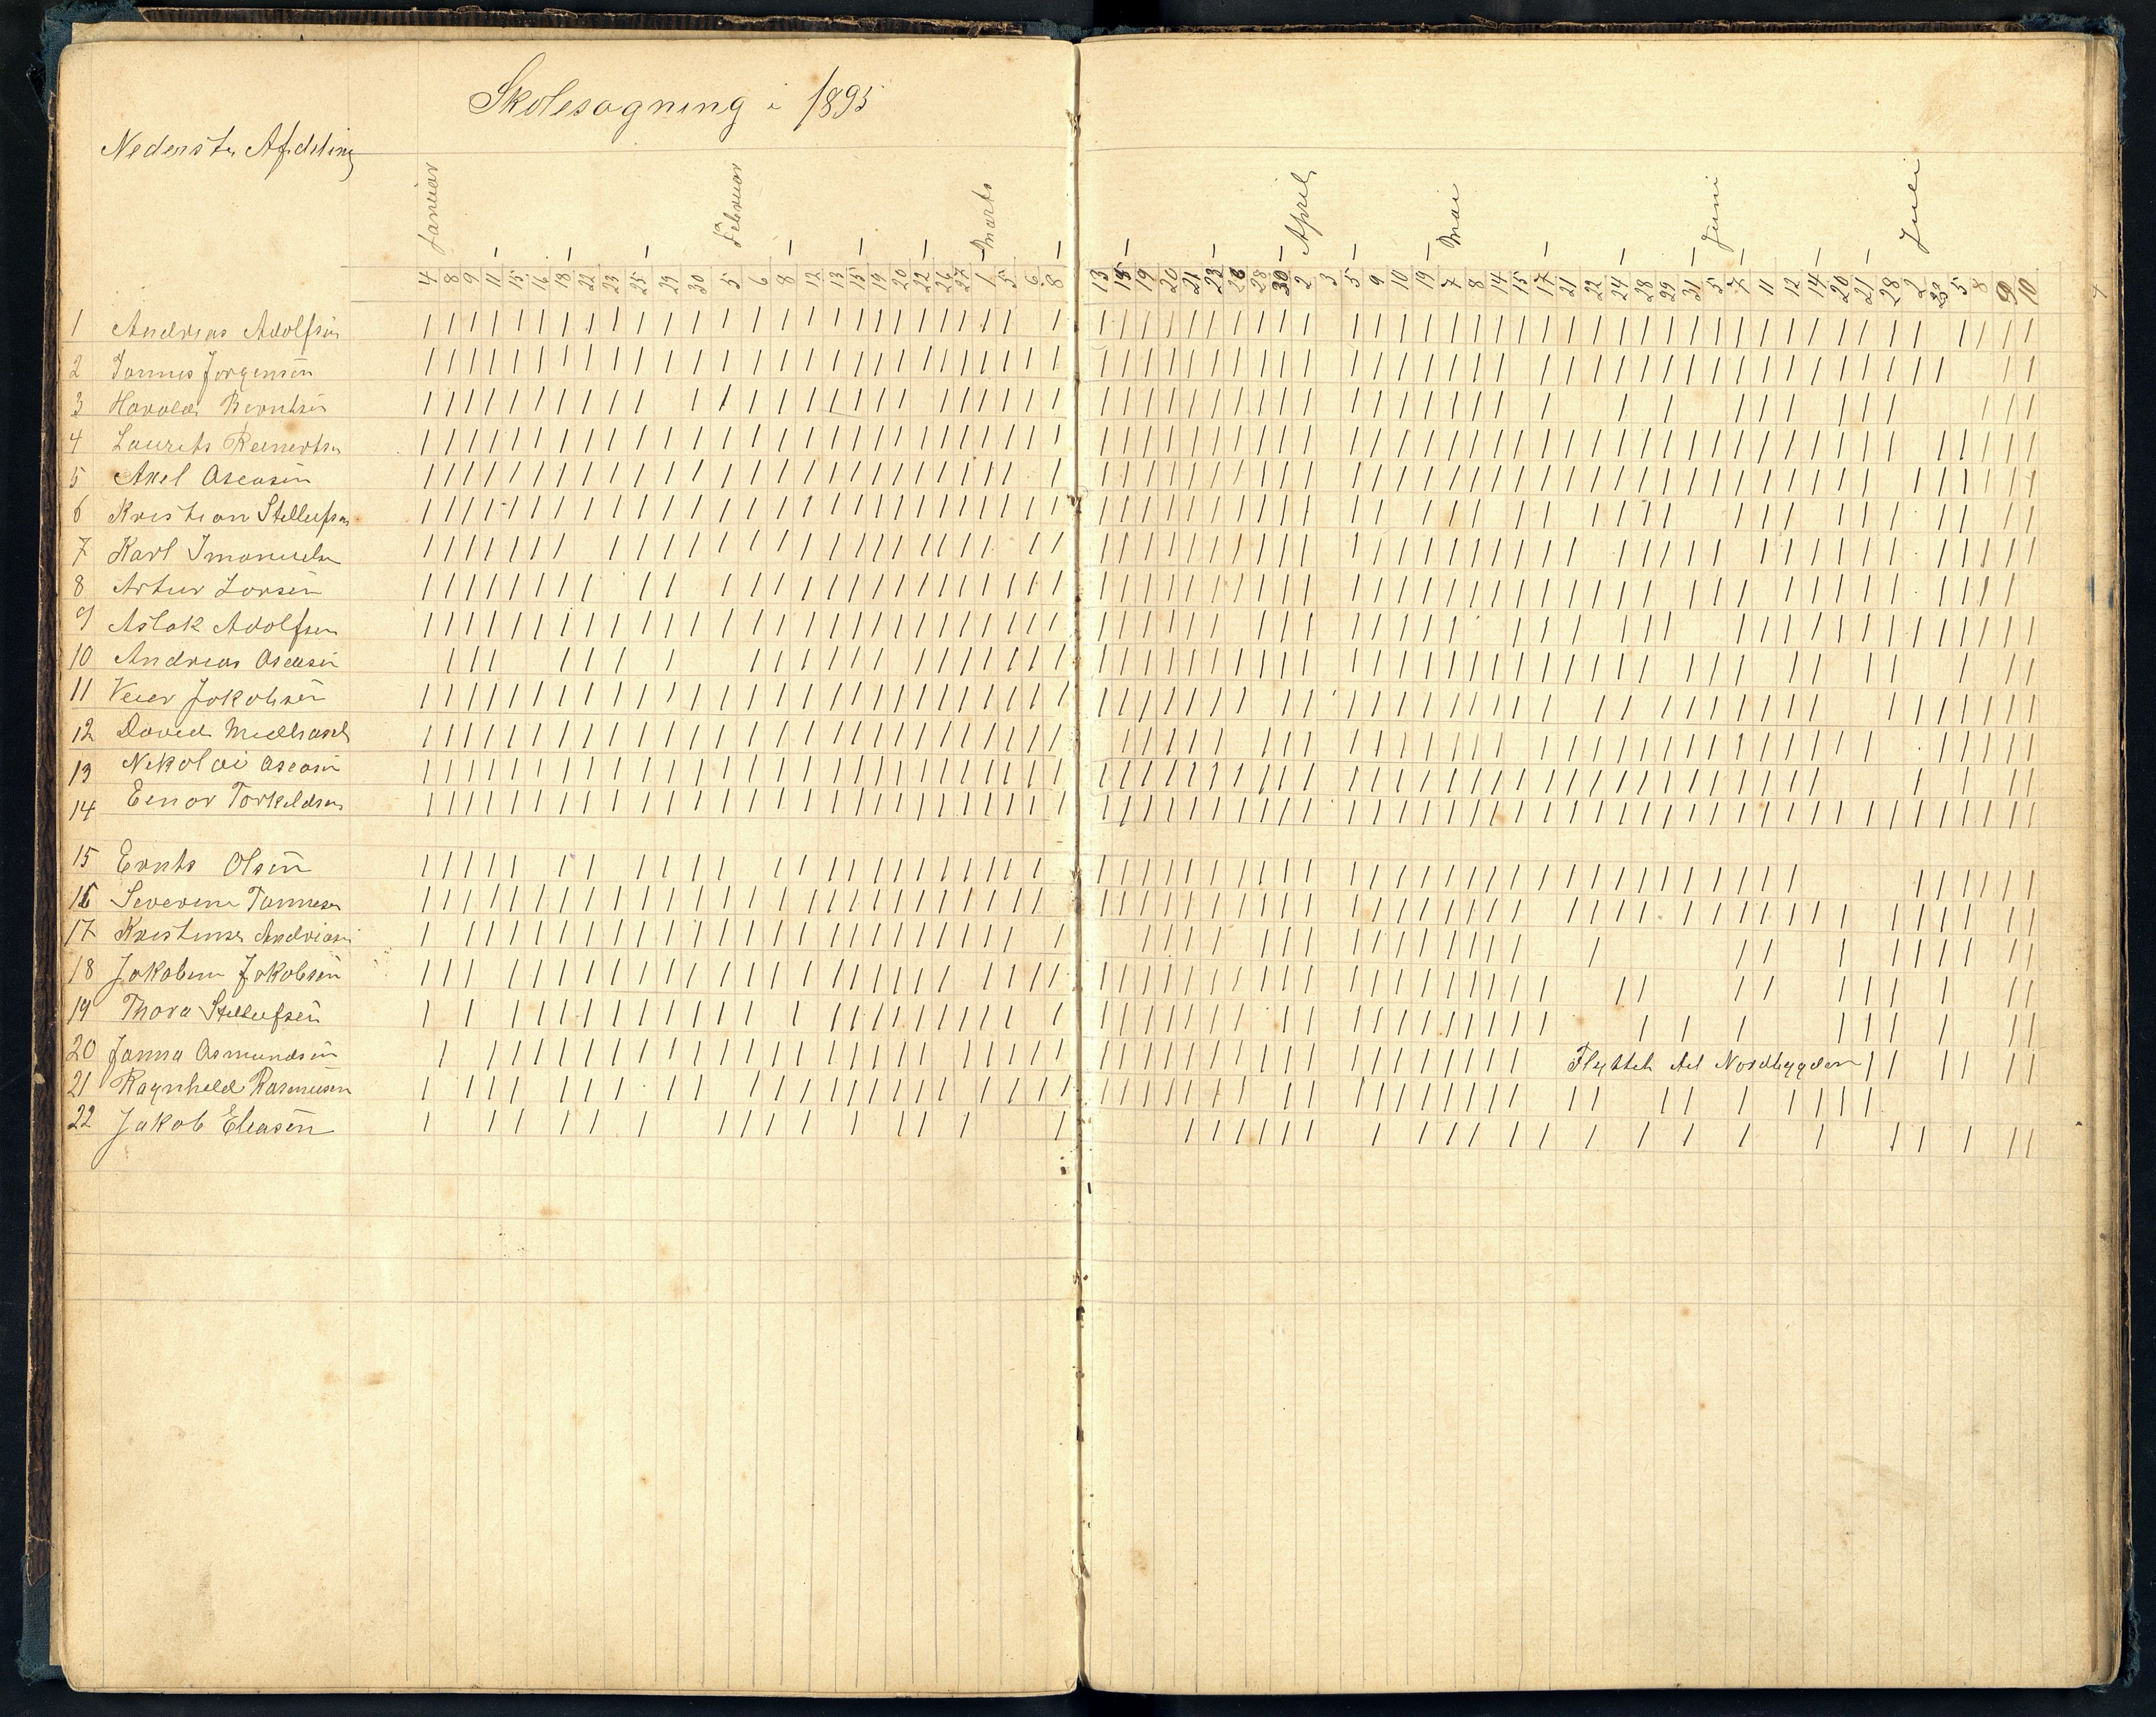 Skolesøgning i 1895
Nederste Afdeling
Januar Februar Marts April Mai Juni Juli
4 8 9 11 15 16 18 22 23 25 29 30 5 6 8 12 13 15 19 20 22 26 27 1 5 6 8 13 15 19 20 21 23 26 28 30 2 3 5 9 10 19 7 8 14 15 17 21 22 24 28 29 31 5 7 11 12 14 20 21 28 2 3 5 8 9 10
1 Andreas Adolfsen
2 Tønnes Jørgensen
3 Harald Berntsen
4 Laurits Reinertsen
5 Axel Oseasen
6 Kristian Stellefsen
7 Karl Imanuelsen
8 Artur Larsen
9 Aslak Adolfsen
10 Andreas Oseasen
11 Veier Jakobsen
12 David
13 Nikolai Oseasen
14 Einar Torkeldsen
15 Ernts Olsen
16 Severine Tønnesen
17 Kristine Andreasen
18 Jakobine Jakobsen
19 Thora Stellefsen
20 Janna Osmundsen
Flyttet til Nordbygden
21 Ragnhild Rasmussen
22 Jakob Eliasen